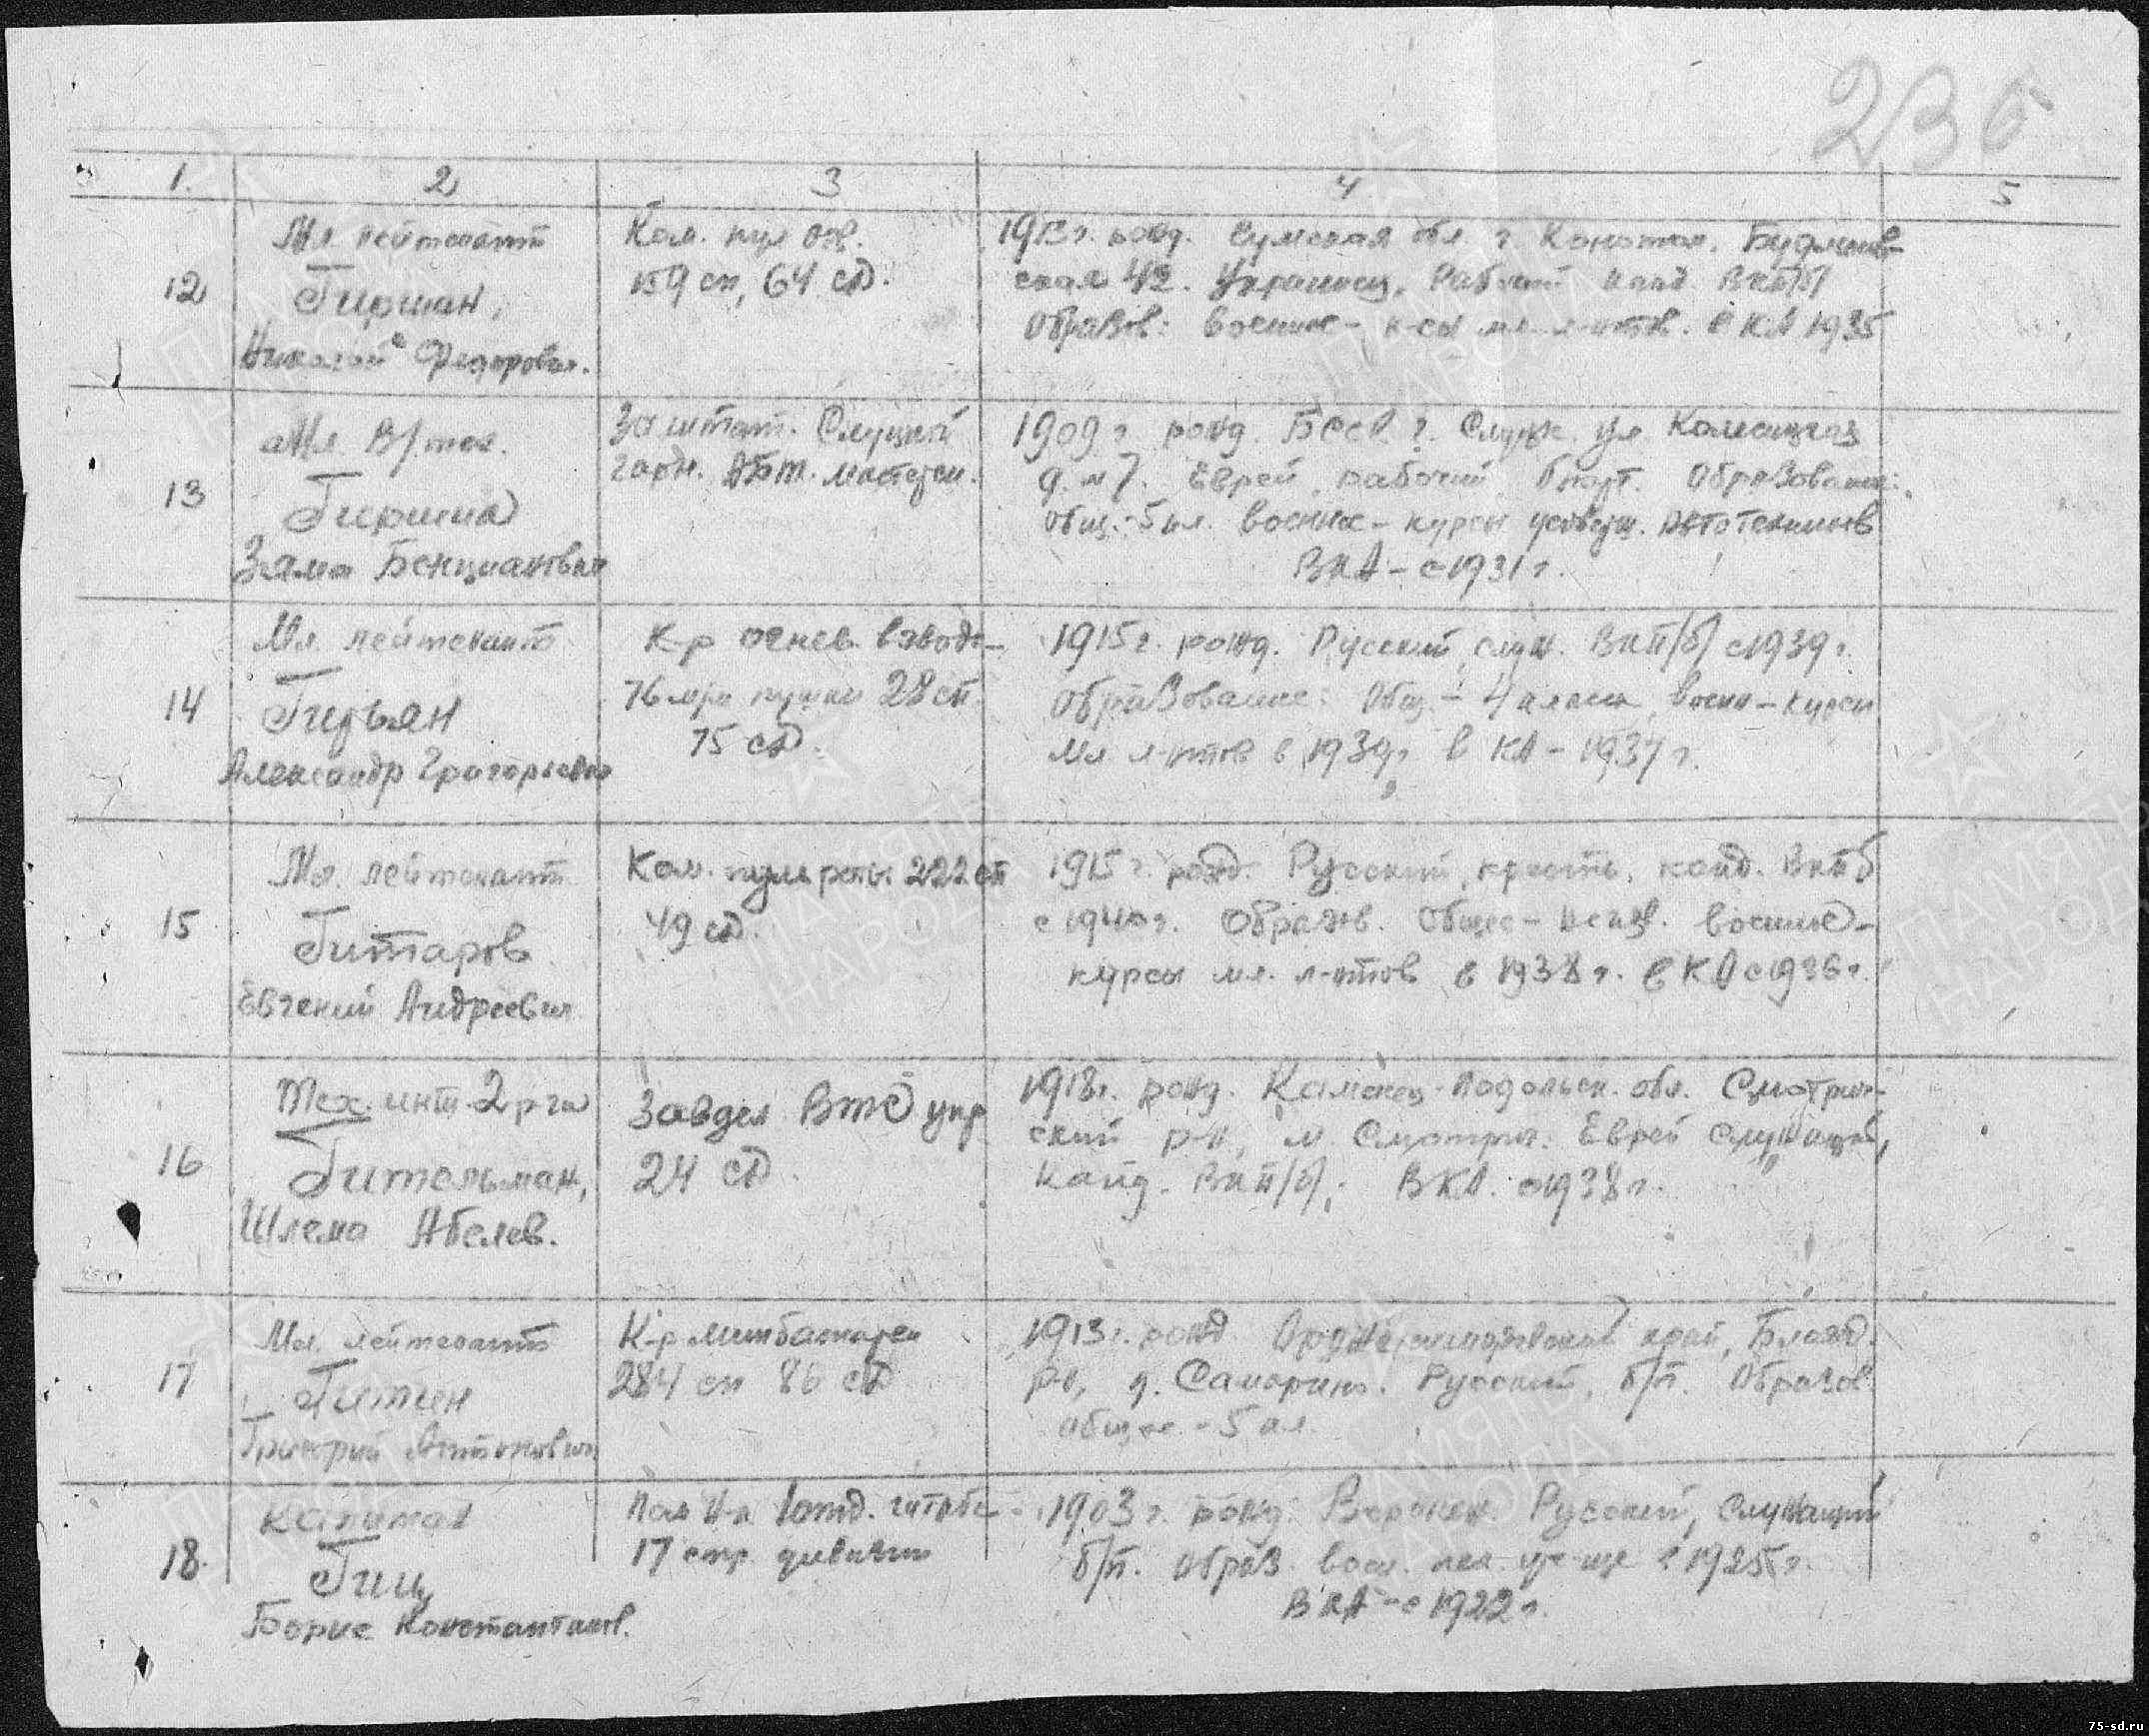 236
1. 2 3 4 5
12
Мл. лейтенант
Гиршан,
Николай Федорович.
Ком. пул
159 сп, 64 сд.
1913 г. рожд. Сумская обл. г. Конотоп.
ская 42. Украинец. Рабочий канд. ВКП/б/
Образов: военное - к-сы мл. л-нтов. в КА 1935
13
Мл. В/тех.
Гиршид
Зяма Бенцианович
За штат. Слуцкой
гарн. АБТ. мастерск.
1909 г. рожд. БССР. г. Слуцк ул.
д. № 7. Еврей, рабочий, б/парт. Образование:
общ. - 5 кл. военное - курсы усоверш. автотехников
В КА - с 1931 г.
14
Мл. лейтенант
Гирьян
Александр Григорьевич
К-р огнев. взвода
76 м/м пушки 28 сп.
75 сд.
1915 г. рожд. Русский, служ. ВКП/б/ с 1939 г.
образование: Общ. - 4 класса, воен - курсы
мл. л-нтов в 1939 г. в КА - 1937 г.
15
Мл. лейтенант
Гитаров
Евгений Андреевич
Ком. пульроты 222 сп
49 сд.
1915 г. рожд. Русский, крест., канд. ВКПб
с 1940 г. Образов. Общее - военное -
курсы мл. л-нтов в 1938 г. в КА с 1936 г.
16
Тех. инт 2 р-га
Гительман,
Шлема Абелев.
Завдел ВТС упр
24 сд.
1913 г. рожд. Каменец-Подольск. обл. Смотрич-
ский р-н, м. Смотрич. Еврей служащий,
канд. ВКП/б/; В КА. с 1938 г.
17
Мл. лейтенант
Гитин
Григорий Антонович
К-р минбатареи
284 сп 86 сд
1913 г. рожд Орджоникидзевский край,
р-н, д. Русский, б/п. Образов.
общее - 5 кл.
18.
капитан
Гиц
Борис Константинов.
Пом Н-ка 1 отд. штаба
17 стр. дивизии
1903 г. рожд. Воронеж. Русский, служащий
б/п. Образ. воен. пех. уч-ще в 1925 г.
В КА - с 1922 г.
ПАМЯТЬ
НАРОДА
75-sd.ru